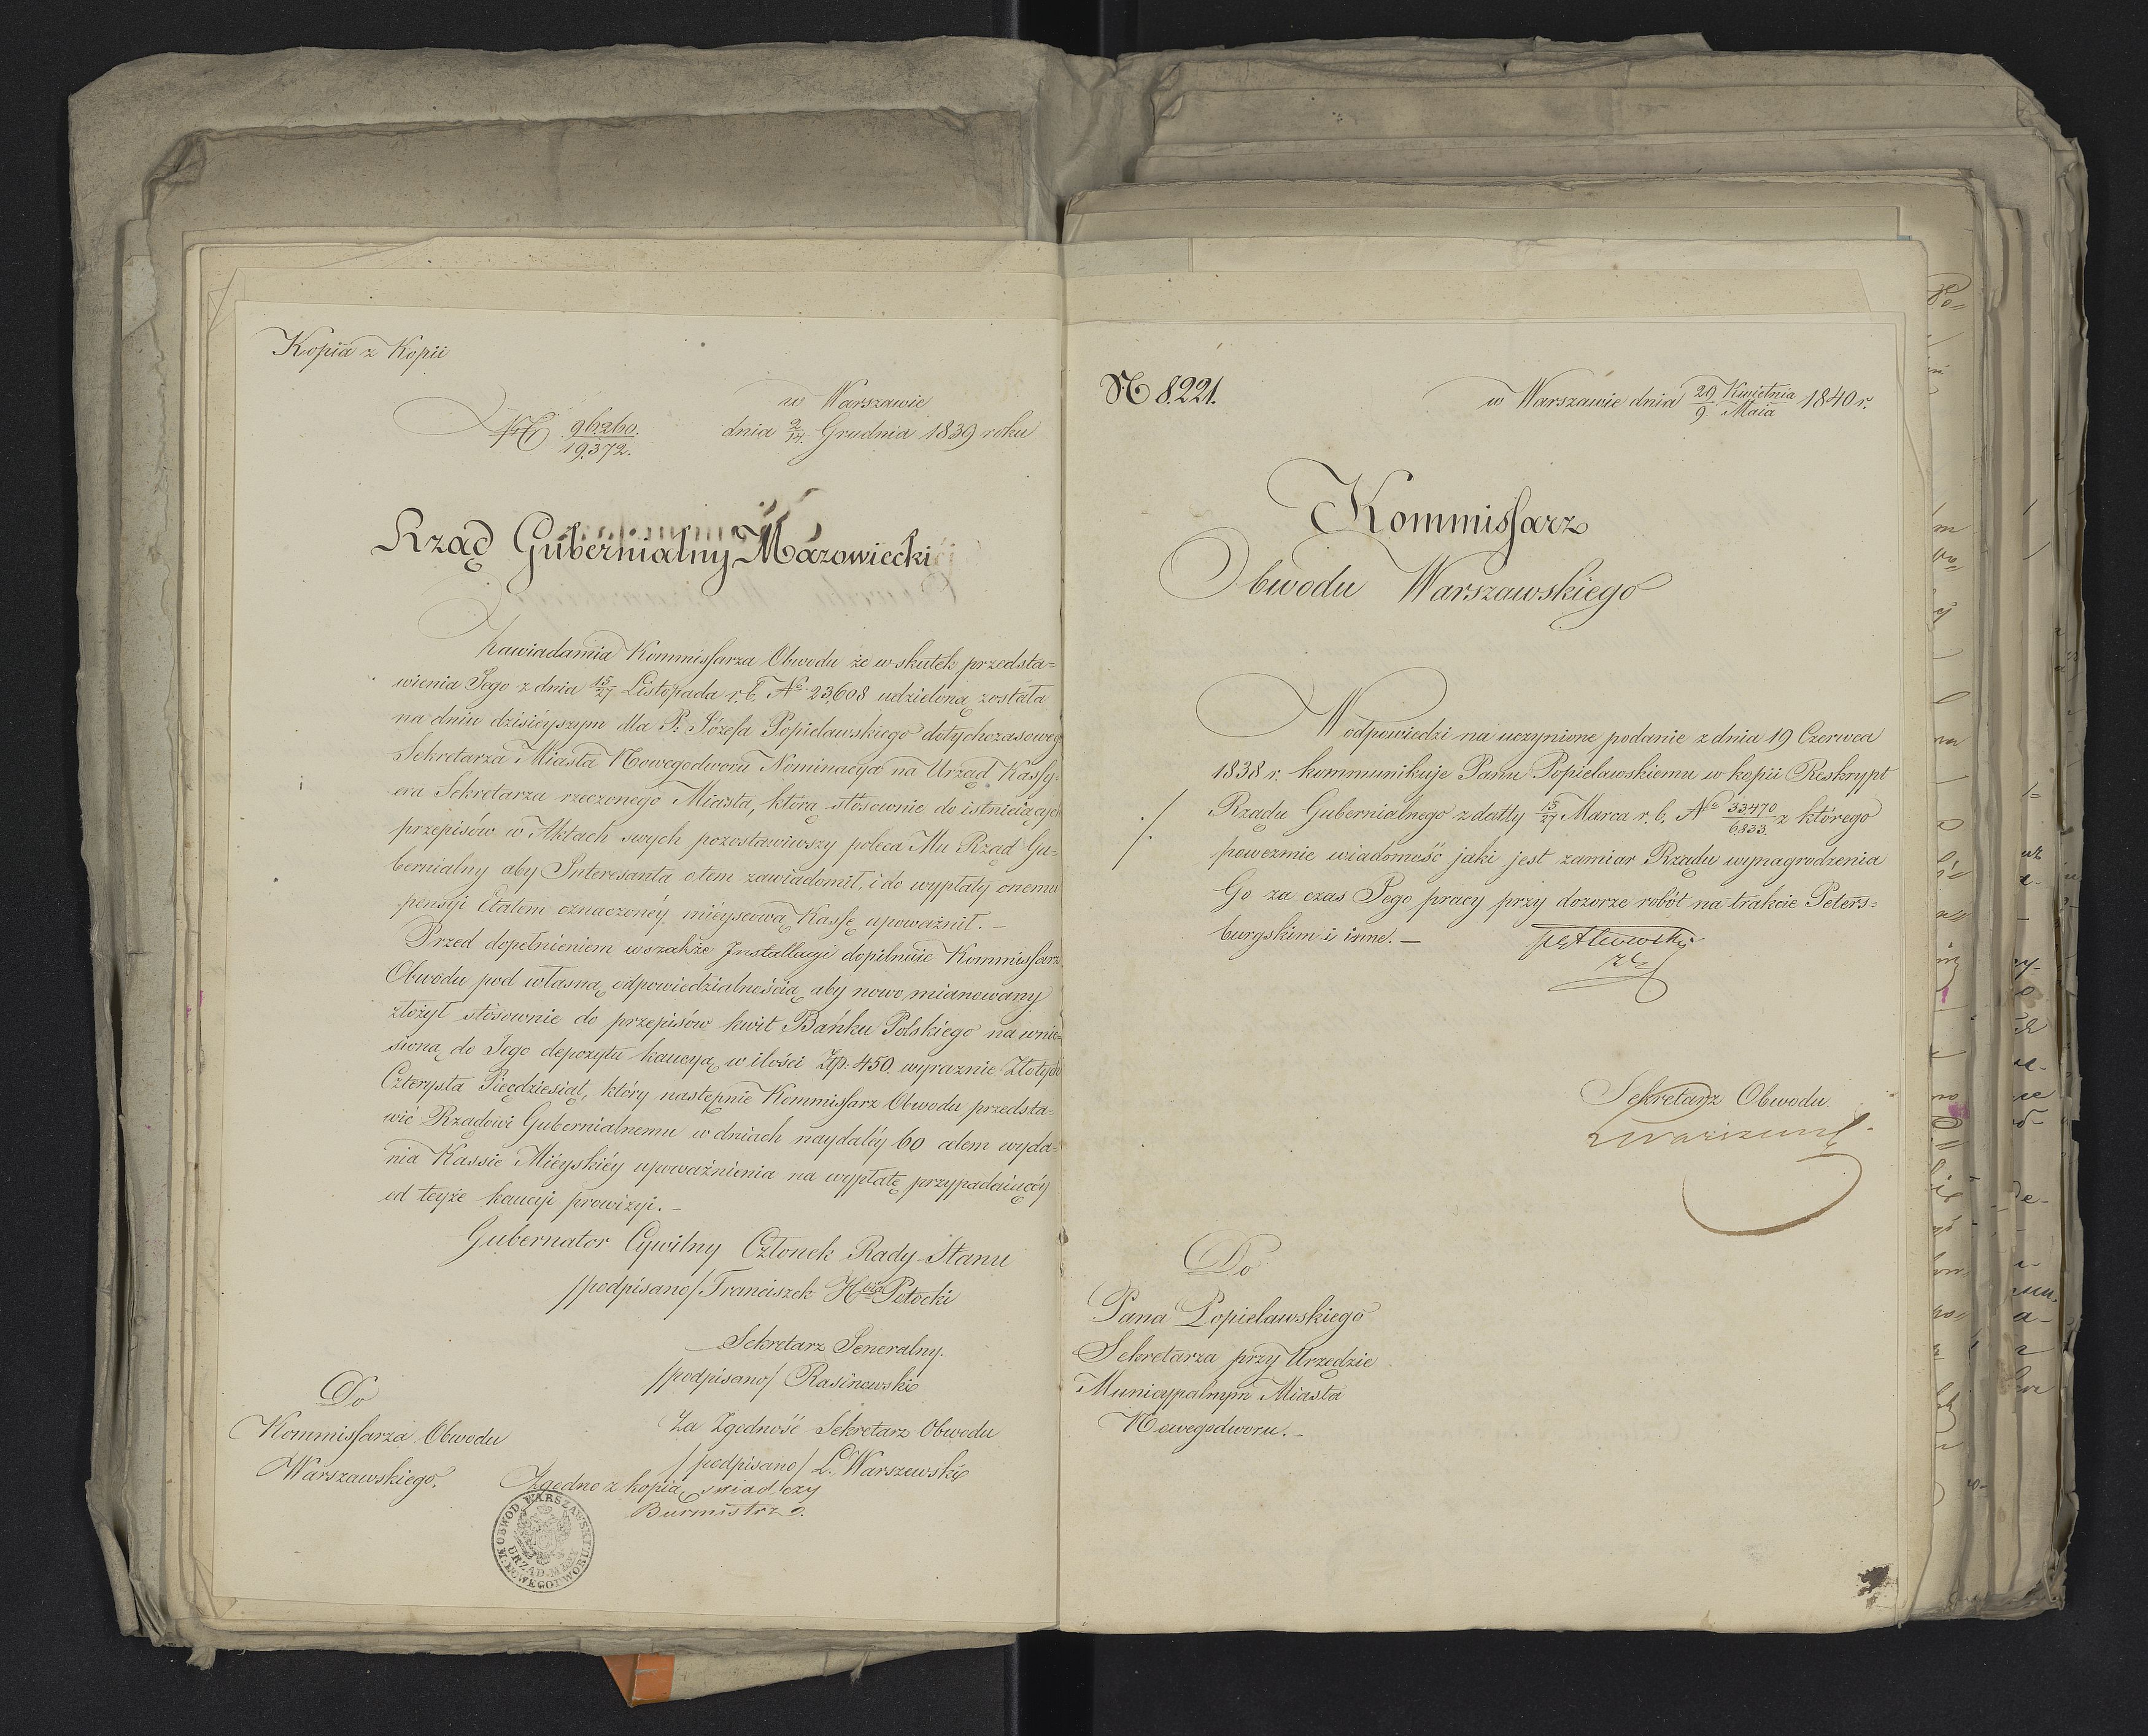 Kopia z Kopii
w Warszawie
№ 96260./19372. dnia 2/14. Grudnia 1839 roku
Rząd Gubernialny Mazowiecki
Zawiadamia Kommissarza Obwodu że w skutek przedsta=
wienia Jego z dnia 15/27 Listopada r. b. No 23,608 udzieloną została
na dniu dzisiéyszym dla P. Józefa Popielawskiego dotychczasowego
Sekretarza Miasta Nowegodworu Nominacya na Urząd Kassy-
era Sekretarza rzeczonego Miasta, którą stósownie do istnieiących
przepisów w Aktach swych pozostawiwszy poleca Mu Rząd Gu=
bernialny aby Interesanta o tem zawiadomił, i do wypłaty onemu
pensyi Etatem oznaczonéy miéyscową Kassę upoważnił. –
Przed dopełnieniem wszakże Installacyi dopilnuie Kommissarz
Obwodu pod własną odpowiedzialnością aby nowo mianowany
złożył stósownie do przepisów kwit Banku Polskiego na wnie=
sioną do Jego depozytu kaucyą w ilości Złp: 450. wyraznie Złotych
Czterysta Pięcdziesiąt, który następnie Kommissarz Obwodu przedsta-
wić Rządowi Gubernialnemu w dniach naydaléy 60 celem wyda=
nia Kassie Miéyskiéy upoważnienia na wypłatę przypadaiącéy
od teyże kaucyi prowizyi. –
Gubernator Cywilny Członek Rady Stanu
/podpisano/ Franciszek Hrbia Potocki
Sekretarz Jeneralny.
/podpisano/ Rasinowski
Do
Kommissarza Obwodu
Warszawskiego.
Za Zgodność Sekretarz Obwodu
/podpisano/ L. Warszewski
Zgodno z kopią swiadczy
Burmistrz
OBWOD WARSZAWSKI
URZĄD
M. NOWEGODWORU
№ 8221.
w Warszawie dnia 29 Kwietnia/9. Maia 1840 r.
Kommissarz
Obwodu Warszawskiego
W odpowiedzi na uczynione podanie z dnia 19 Czerwca
1838 r. kommunikuje Panu Popielawskiemu w kopii Reskrypt
Rządu Gubernialnego z datty 15/27 Marca r. b. No 33470/6833. z którego
poweźmie wiadomość jaki jest zamiar Rządu wynagrodzenia
Go za czas Jego pracy przy dozorze robót na trakcie Peters=
burgskim i inne. –
Sekretarz Obwodu.
Do
Pana Popielawskiego
Sekretarza przy Urzędzie
Municypalnym Miasta
Nowegodworu. –